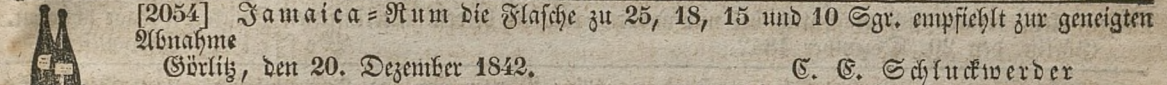 [2054] Jamaica=Rum die Flasche zu 25, 18, 15 und 10 Sgr. empfiehlt zur geneigten
Abnahme
Görlitz, den 20. Dezember 1842. C. E. Schluckwerder